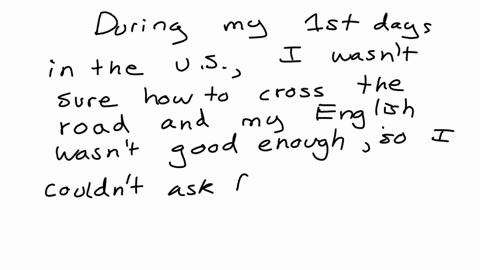 During my 1st days
in the U.S., I wasn't
sure how to cross the
road and my English
wasn't good enough, so I
couldn't ask